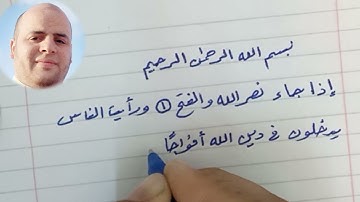 بسم الله الرحمن الرحيم
إذا جاء نصر الله والفتح ① ورأيت الناس
يدخلون في دين الله أفواجًا